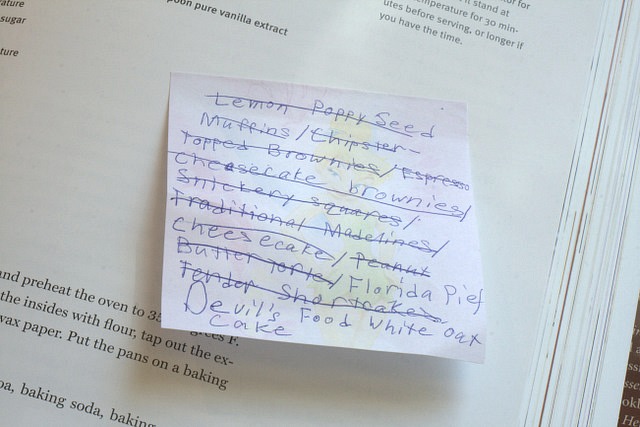 rature
sugar
ture
poon pure vanilla extract
it stand at
temperature for 30 min-
utes before serving, or longer if
you have the time.
Lemon Poppy Seed
Muffins/Chipster-
Topped Brownies/Espresso
Cheasecake brownies/
Snickery squares/
Traditional Madelines/
Cheesecake/Peanut
Butter Torte/Florida Pie
Tender Shortcakes
Devil's Food White Out
Cake
and preheat the oven to 35 grees F.
the insides with flour, tap out the ex-
wax paper. Put the pans on a baking
pa, baking soda, baking